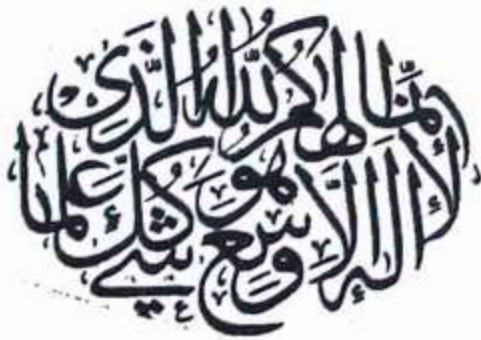 إنما إلهكم الله الذي
لا إله إلا هو وسع كل شيء علما